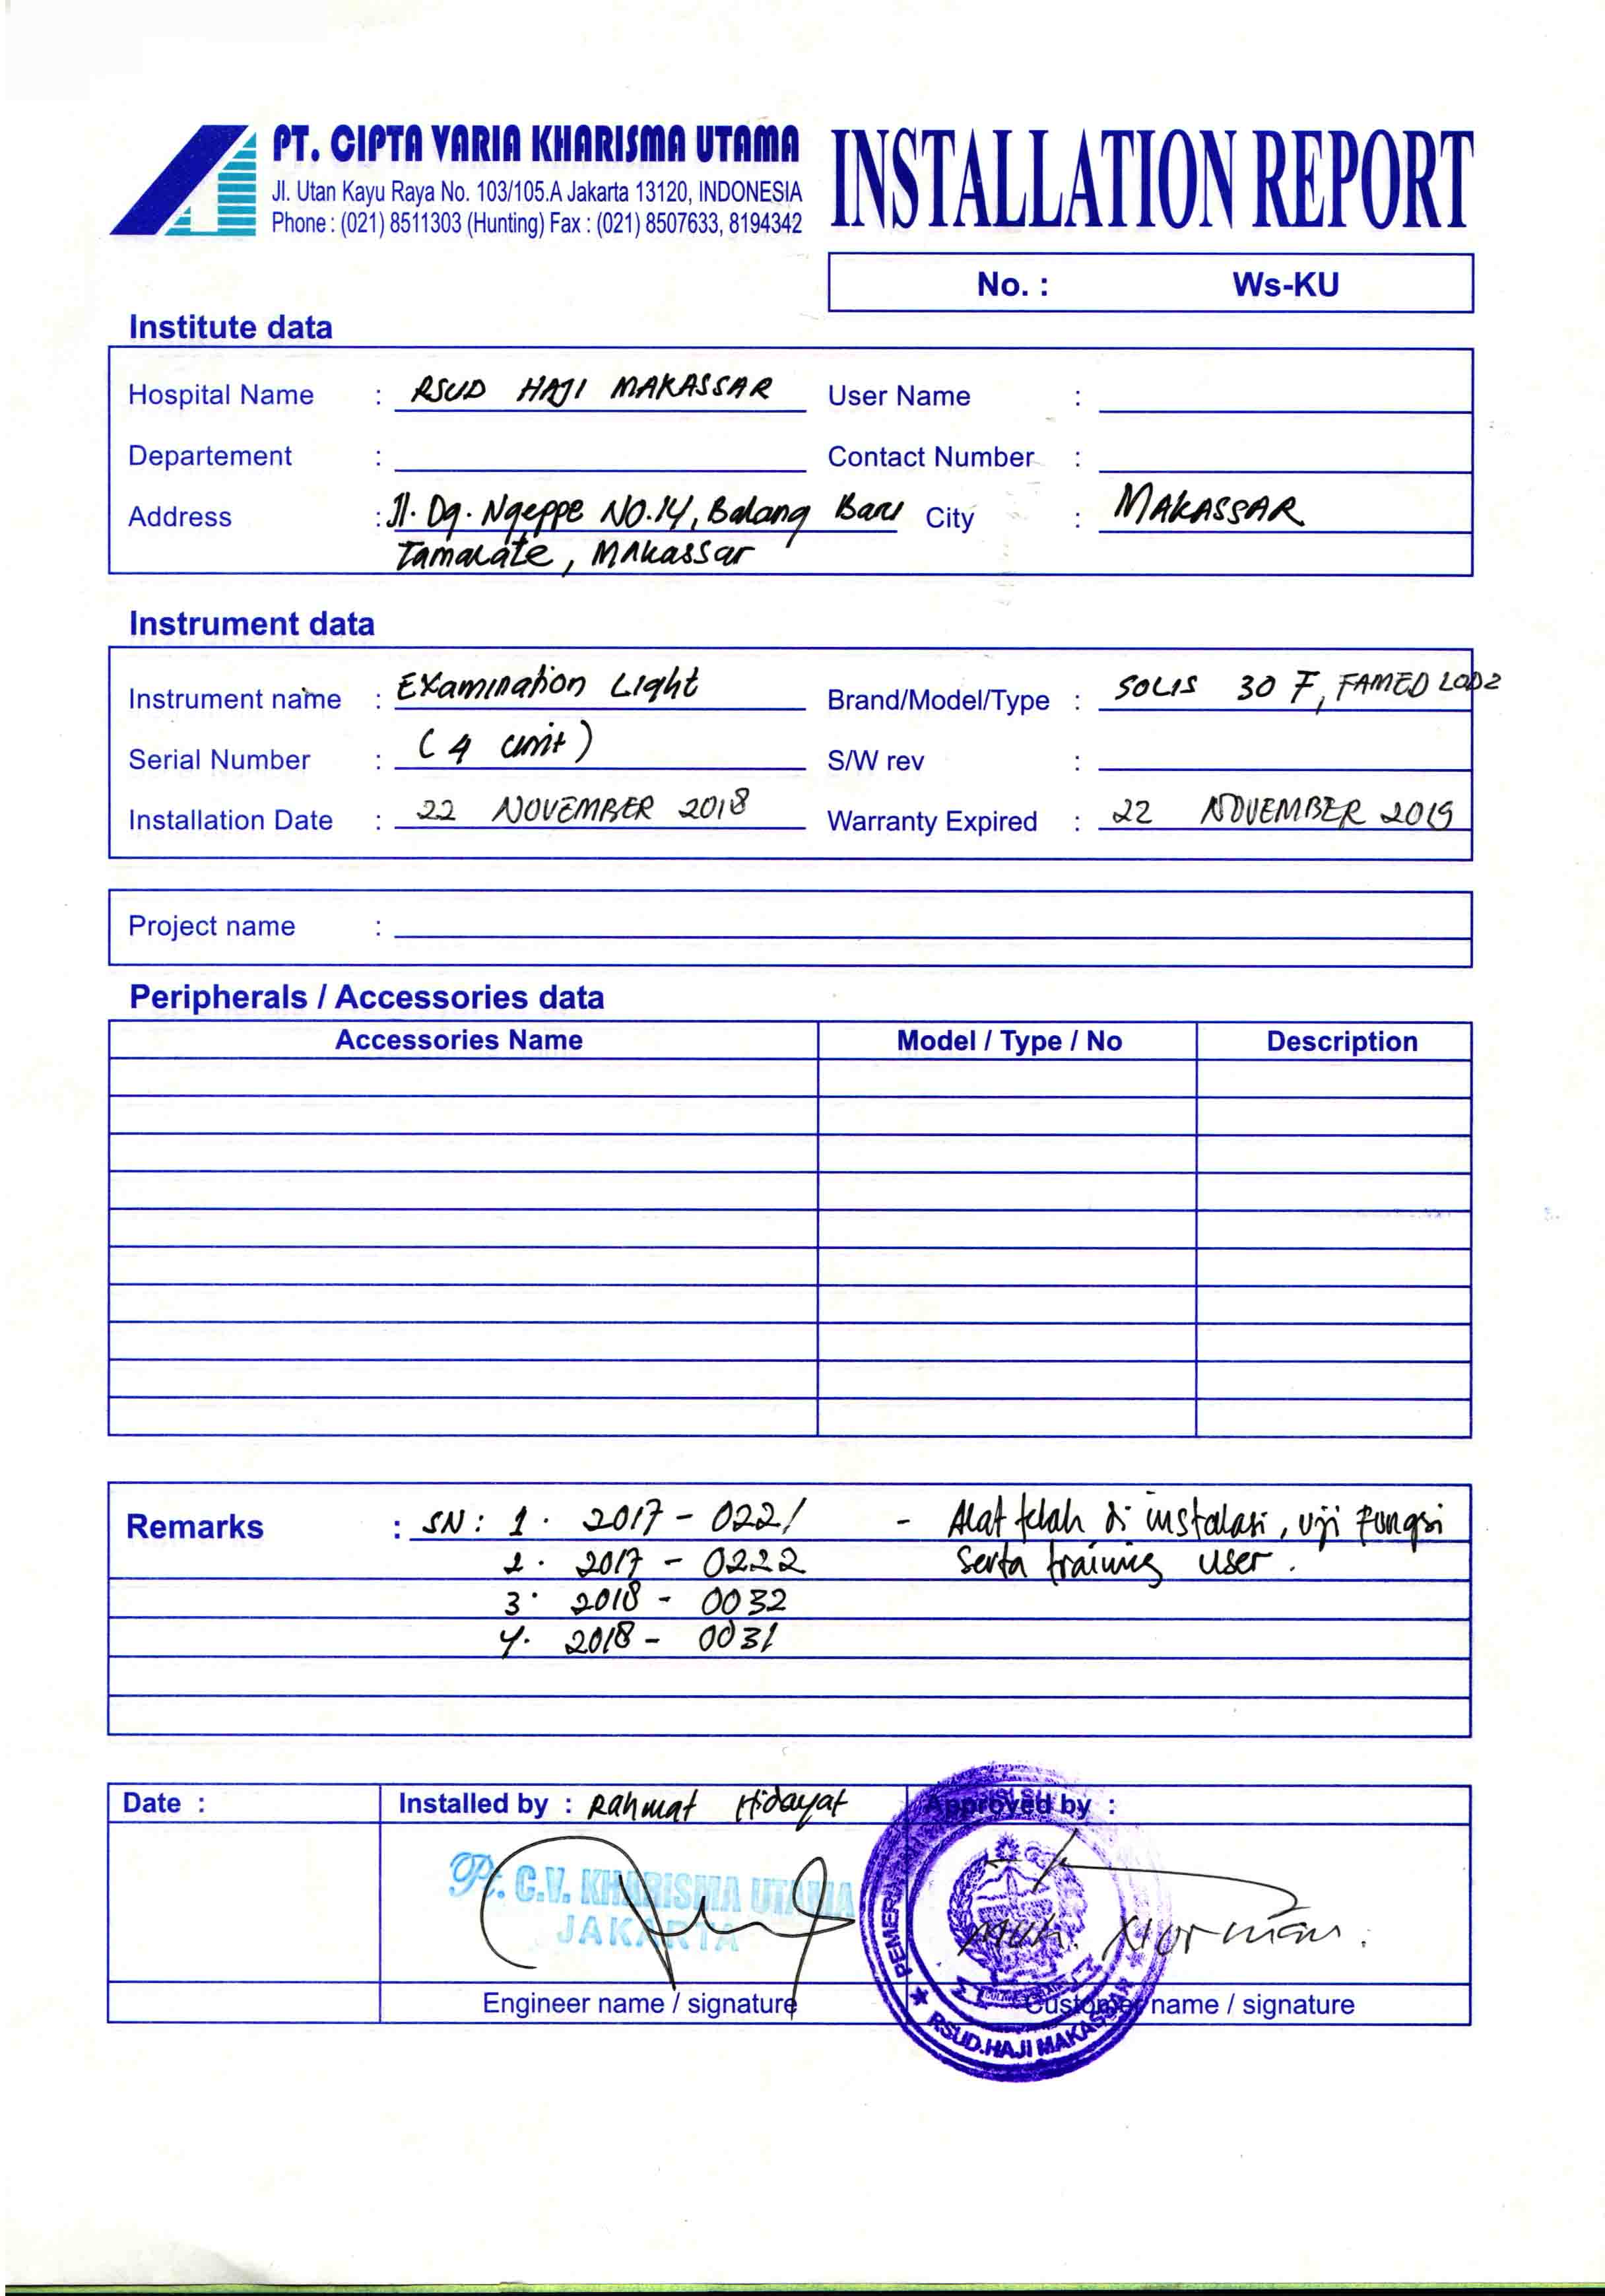 PT. CIPTA VARIA KHARISMA UTAMA
Jl. Utan Kayu Raya No. 103/105.A Jakarta 13120, INDONESIA
Phone : (021) 8511303 (Hunting) Fax : (021) 8507633, 8194342
INSTALLATION REPORT
No. : Ws-KU
Institute data
Hospital Name : RSUD HAJI MAKASSAR User Name :
Departement : Contact Number :
Address : Jl. Dg. Ngeppe NO.14, Balang Baru City : MAKASSAR
Tamalate, Makassar
Instrument data
Instrument name : Examination Light Brand/Model/Type : SOLIS 30 F, FAMED LODZ
Serial Number : (4 unit) S/W rev :
Installation Date : 22 NOVEMBER 2018 Warranty Expired : 22 NOVEMBER 2019
Project name :
Peripherals / Accessories data
Accessories Name Model / Type / No Description
Remarks : SN : 1. 2017 - 0221 - Alat telah di instalasi, uji fungsi
2. 2017 - 0222 serta training user.
3. 2018 - 0032
4. 2018 - 0031
Date : Installed by : Rahmat Hidayat Approved by :
Pt. C.V. KHARISMA UTAMA
JAKARTA
Muh. Norman.
Engineer name / signature Customer name / signature
RSUD.HAJI MAKASSAR